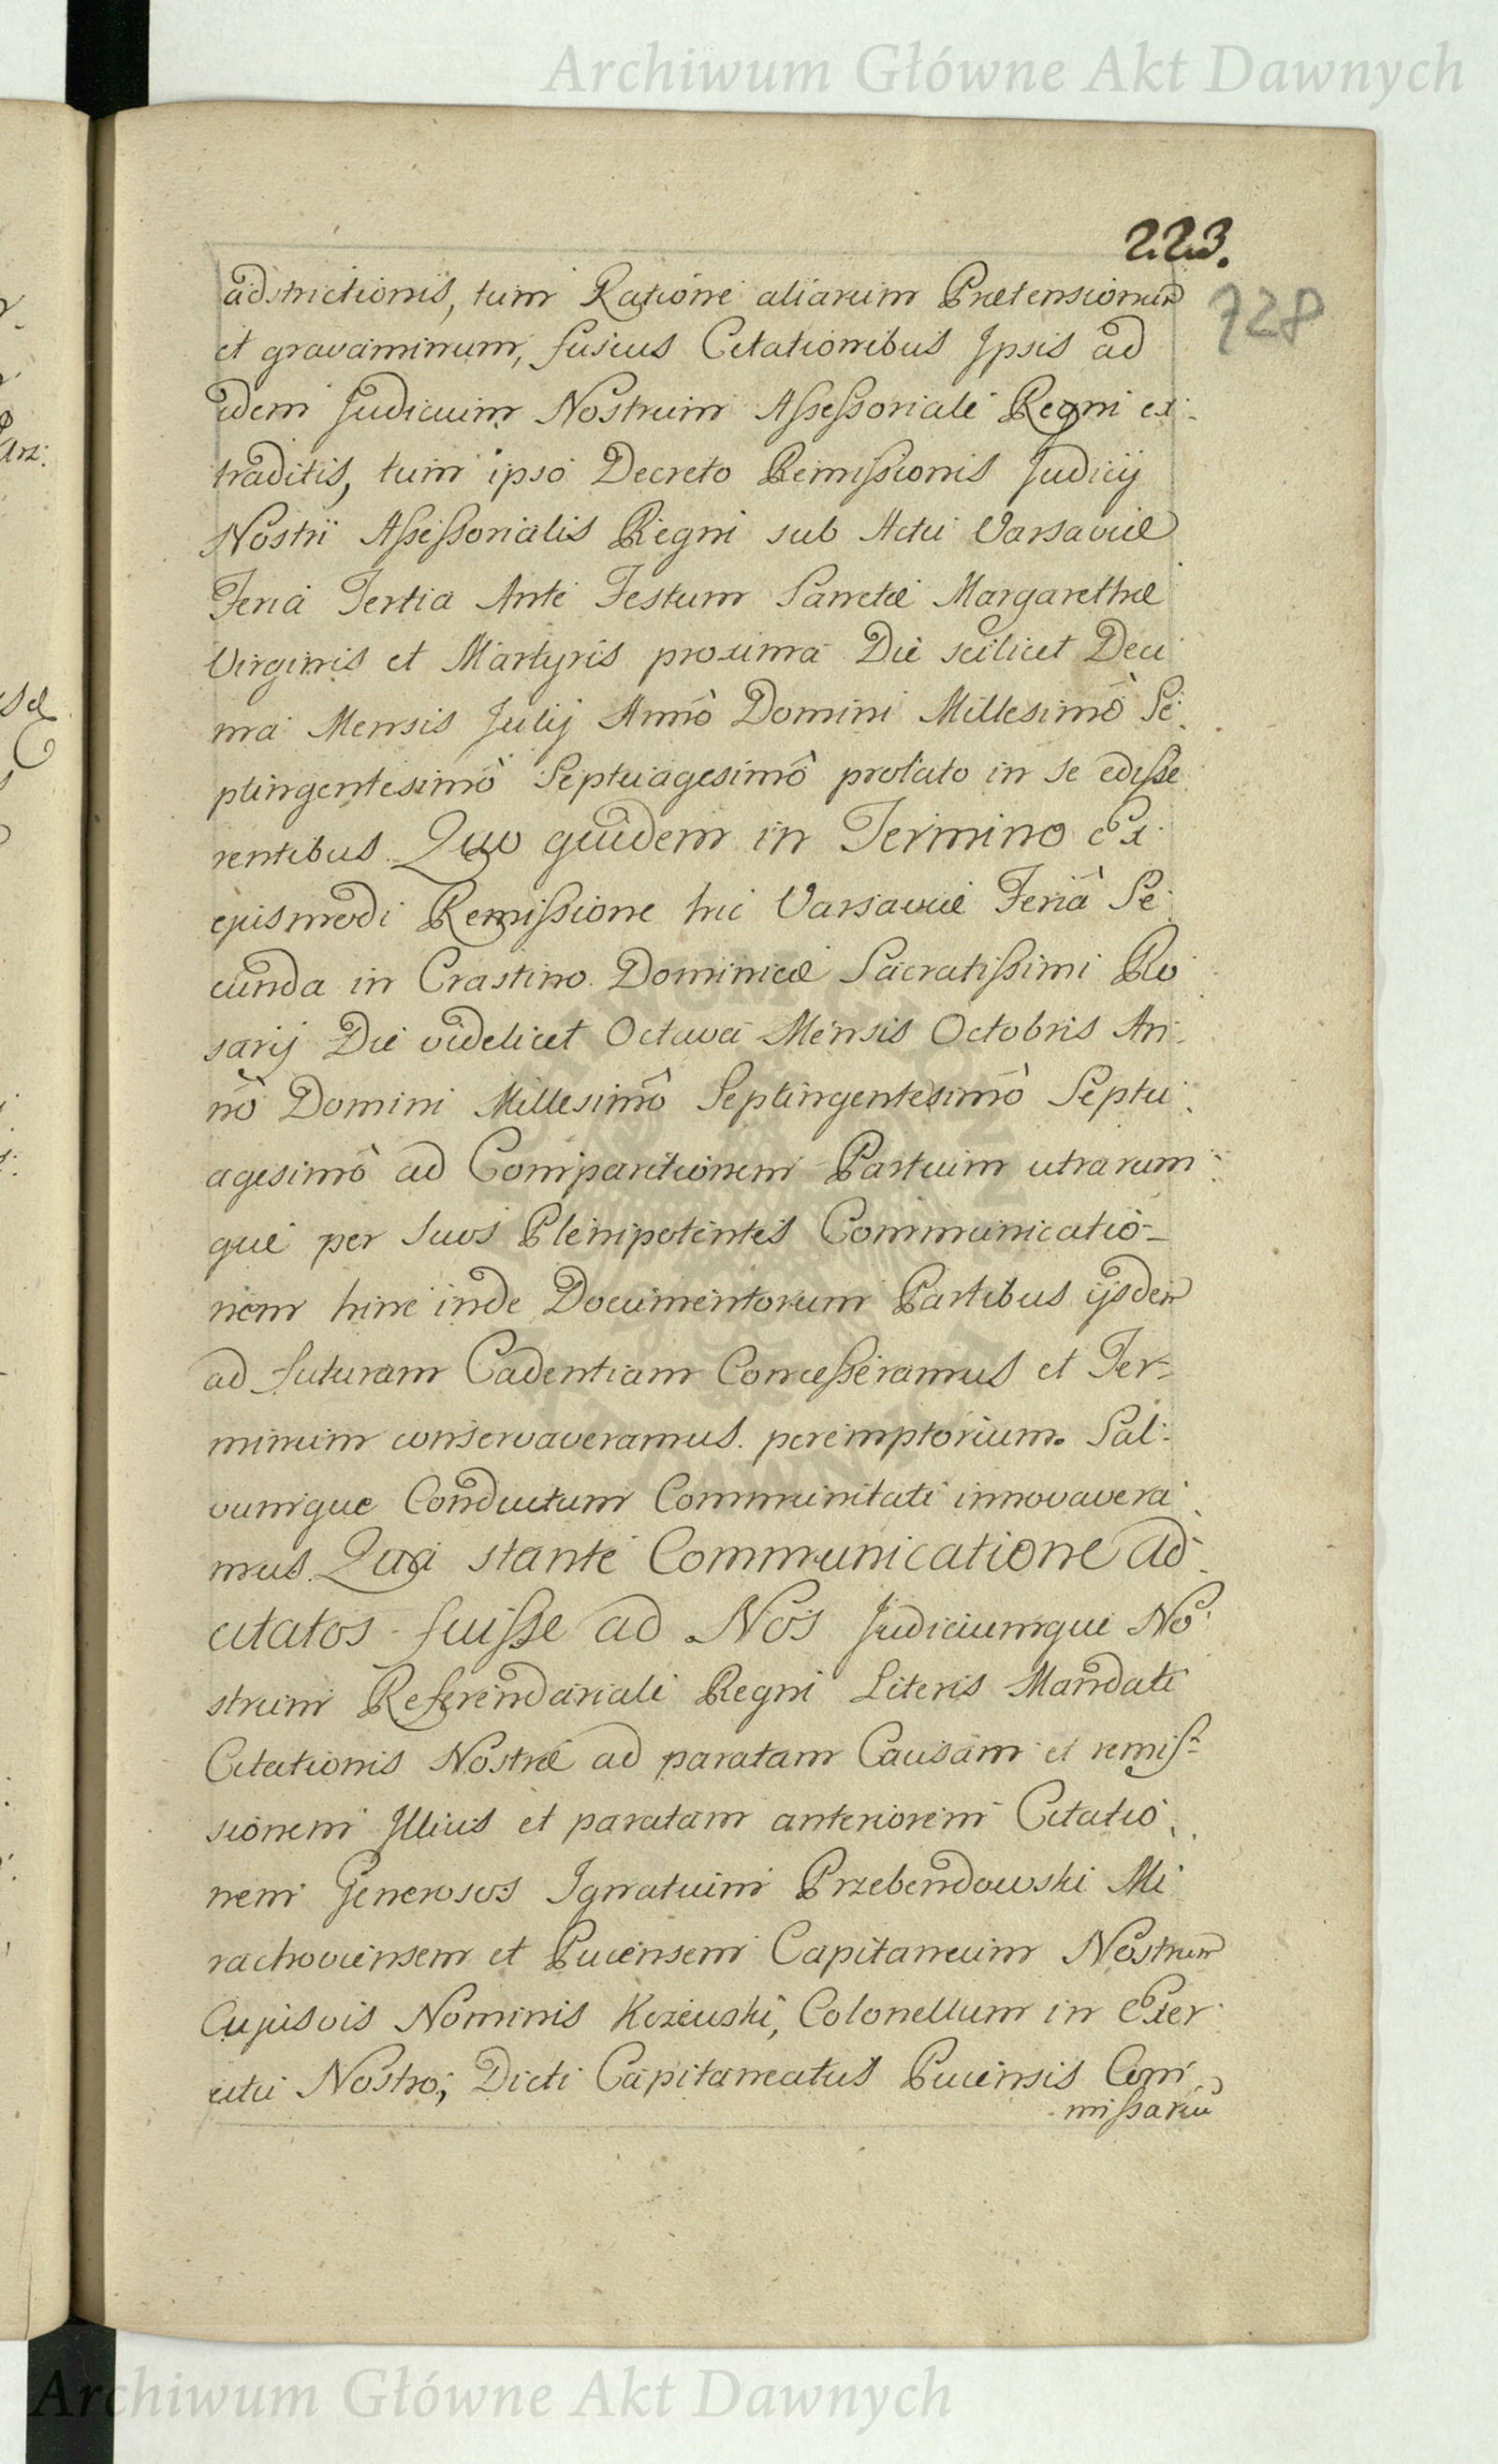 Archiwum Główne Akt Dawnych
223.
728
adstrictionis, tum Ratione aliarum Prætensionum
et gravaminum, fusius Citationibus Ipsis ad
idem Judicium Nostrum Assessoriale Regni ex-
traditis, tum ipso Decreto Remissionis Judicij
Nostri Assessorialis Regni sub Actu Varsaviæ
Feria Tertia Ante Festum Sanctæ Margarethæ
Virginis et Martyris proxima Die scilicet Deci
ma Mensis Julij Annô Domini Millesimô Se-
ptingentesimô Septuagesimô prolato in se edisse
rentibus. Quo quidem in Termino ex
ejusmodi Remissione hic Varsaviæ Feriâ Se
cunda in Crastino Dominicæ Sacratissimi Ro
sarij Die videlicet Octava Mensis Octobris An-
nô Domini Millesimô Septingentesimô Septu-
agesimô ad Comparitionem Partium utrarum-
que per suos Plenipotentes Communicatio-
nem hinc inde Documentorum Partibus ijsdem
ad futuram Cadentiam Concesseramus et Ter-
minum conservaveramus peremptorium. Sal-
vumque Conductum Communitati innovavera
mus. Qua stante Communicatione ad-
citatos fuisse ad Nos Judiciumque No-
strum Referendariale Regni Literis Mandati
Citationis Nostræ ad paratam Causam et remis-
sionem Illius et paratam anteriorem Citatio-
nem Generosos Ignatium Przebendowski Mi
rachoviensem et Pucensem Capitaneum Nostrum
Cujusvis Nominis Kczewski, Colonellum in Exer-
citu Nostro, Dicti Capitaneatus Pucensis Com-
missariu
Archiwum Główne Akt Dawnych